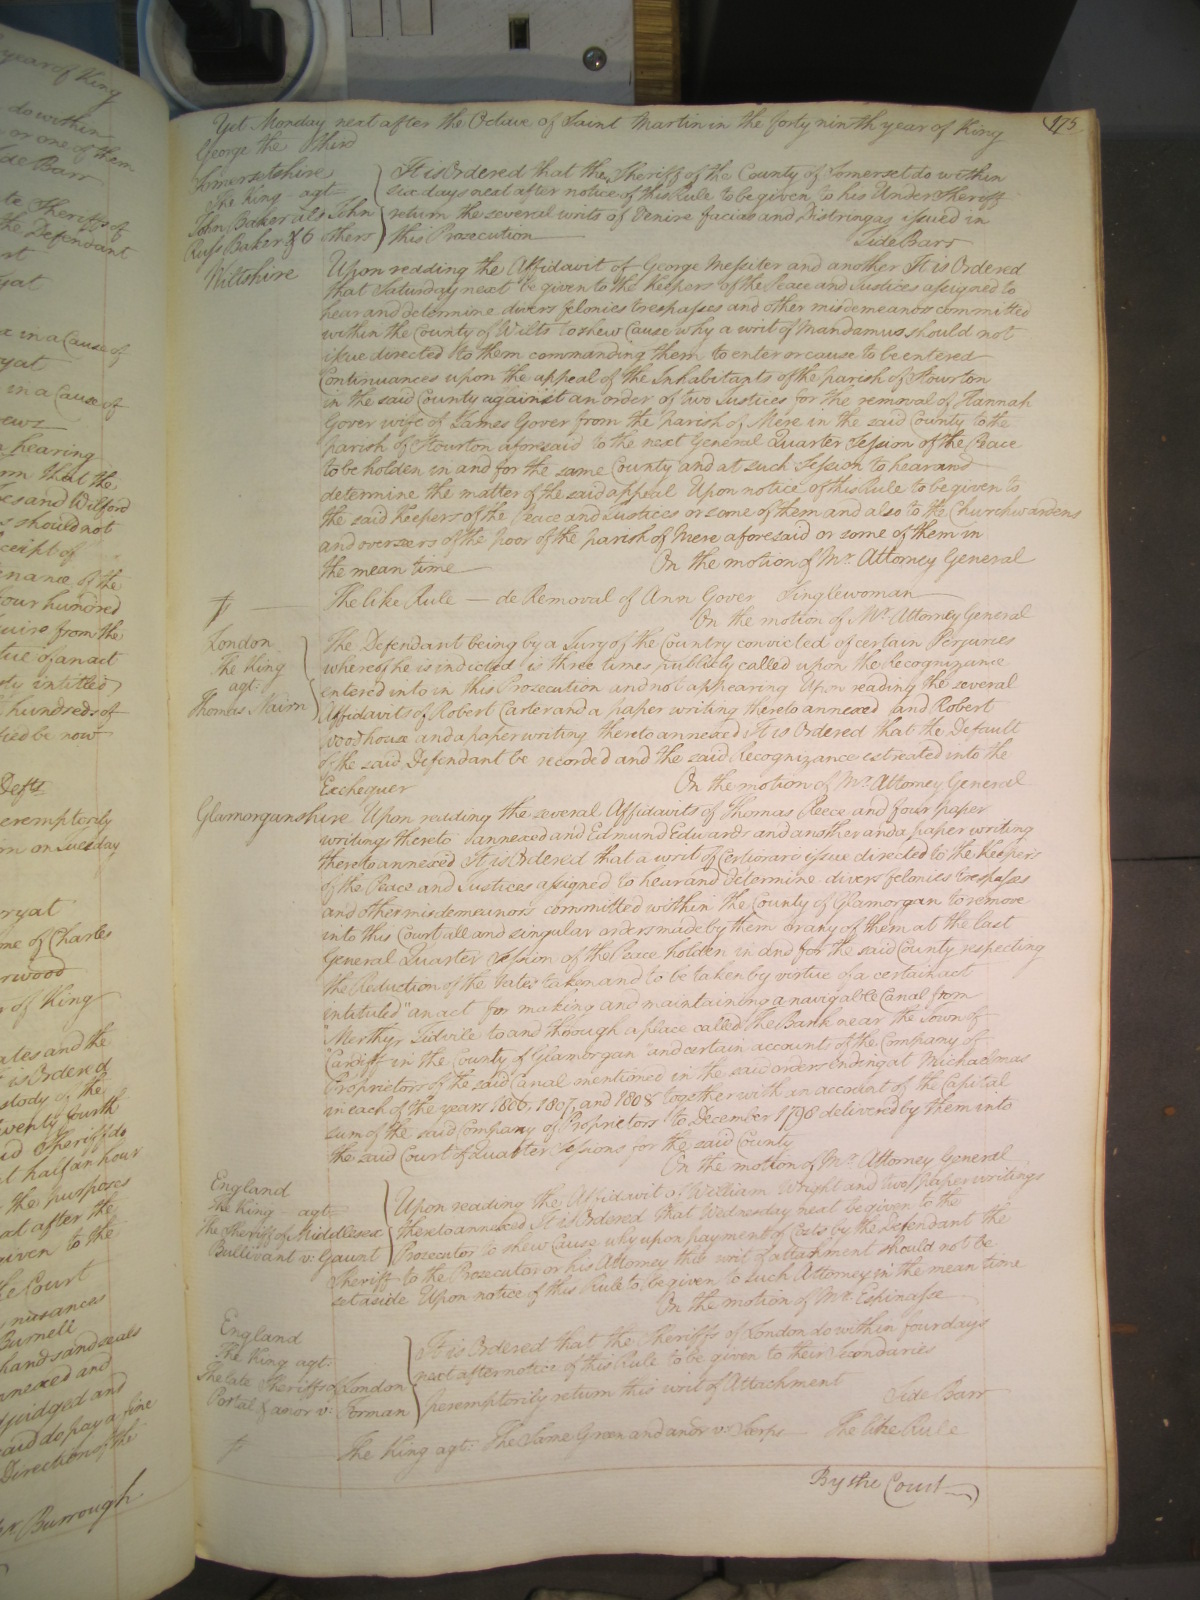 year of King
do within
or one of them
Side Barr
te Sheriffs of
the Defendant
rt
yat
in a Cause of
yat
in a Cause of
ews
hearing
orn that the
es and Wilford
s should not
ceipt of
enance of the
four hundred
uire from the
tue of an act
sty intitled
hundreds of
ied be now
Defts
eremptorily
rn on Tuesday
ryat
me of Charles
rwood
r of King
ates and the
is Ordered
stody of the
twenty fourth
id Sheriff do
t half an hour
the purposes
at after the
given to the
he Court
nuisances
Burnell
hands and seals
nnexed and
djudged and
said do pay a fine
Direction of the
er Burrough
175
Yet Monday next after the Octave of Saint Martin in the forty ninth year of King
George the Third
Somersetshire
The King agt
John Baker als John
Russ Baker & 6 others
It is Ordered that the Sheriff of the County of Somerset do within
six days next after notice of this Rule to be given to his Undersheriff
return the several writs of Venire facias and Distringas issued in
this Prosecution
Side Barr
Wiltshire
Upon reading the Affidavit of George Messiter and another It is Ordered
that Saturday next be given to the Keepers of the Peace and Justices assigned to
hear and determine divers felonies trespasses and other misdemeanors committed
within the County of Wilts To shew Cause why a writ of Mandamus should not
issue directed to them commanding them to enter or cause to be entered
Continuances upon the appeal of the Inhabitants of the parish of Stourton
in the said County against an order of two Justices for the removal of Hannah
Gover wife of James Gover from the parish of Mere in the said County to the
parish of Stourton aforesaid to the next General Quarter Session of the Peace
to be holden in and for the same County and at such Session to hear and
determine the matter of the said appeal Upon notice of this Rule to be given to
the said Keepers of the Peace and Justices or some of them and also to the Churchwardens
and overseers of the poor of the parish of Mere aforesaid or some of them in
the mean time
On the motion of Mr. Attorney General
The like Rule — de Removal of Ann Gover Singlewoman
On the motion of Mr. Attorney General
London
The King
agt:
Thomas Nairn
The Defendant being by a Jury of the Country convicted of certain Perjuries
whereof he is indicted is three times publicly called upon the Recognizance
entered into in this Prosecution and not appearing Upon reading the several
Affidavits of Robert Carter and a paper writing thereto annexed and Robert
Woodhouse and a paper writing thereto annexed It is Ordered that the Default
of the said Defendant be recorded and the said Recognizance estreated into the
Exchequer
On the motion of Mr. Attorney General
Glamorganshire Upon reading the several Affidavits of Thomas Reece and four paper
writings thereto annexed and Edmund Edwards and another and a paper writing
thereto annexed It is Ordered that a writ of Certiorari issue directed to the Keepers
of the Peace and Justices assigned to hear and determine divers felonies trespasses
and other misdemeanors committed within the County of Glamorgan to remove
into this Court all and singular orders made by them or any of them at the last
General Quarter Session of the Peace holden in and for the said County respecting
the Reduction of the Rates taken and to be taken by virtue of a certain act
intituled "an act for making and maintaining a navigable Canal from
"Merthyr Tidvile to and through a place called The Bank near the Town of
"Cardiff in the County of Glamorgan" and certain account of the Company of
Proprietors of the said Canal mentioned in the said orders ending at Michaelmas
in each of the years 1806, 1807, and 1808 together with an account of the Capital
sum of the said Company of Proprietors to December 1798 delivered by them into
the said Court of Quarter Sessions for the said County
On the motion of Mr. Attorney General
England
The King agt:
The Sheriff of Middlesex
Bullivant v: Gaunt
Upon reading the Affidavit of William Wright and two paper writings
thereto annexed It is Ordered that Wednesday next be given to the
Prosecutor to shew Cause why upon payment of Costs by the Defendant the
Sheriff to the Prosecutor or his Attorney this writ of attachment should not be
set aside Upon notice of this Rule to be given to such Attorney in the mean time
On the motion of Mr. Espinasse
England
The King agt:
The late Sheriffs of London
Portal & anor v: Forman
It is Ordered that the Sheriffs of London do within four days
next after notice of this Rule to be given to their Secondaries
peremptorily return this writ of Attachment
Side Barr
The King agt: The Same Green and anor v: The like Rule
By the Court